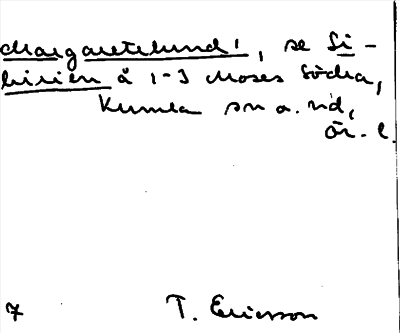 Margaretelund!, se Si-
birien å 1-3 Moses Södra,
Kumla sn o. hd,
Ör. l.
7 T. Ericsson